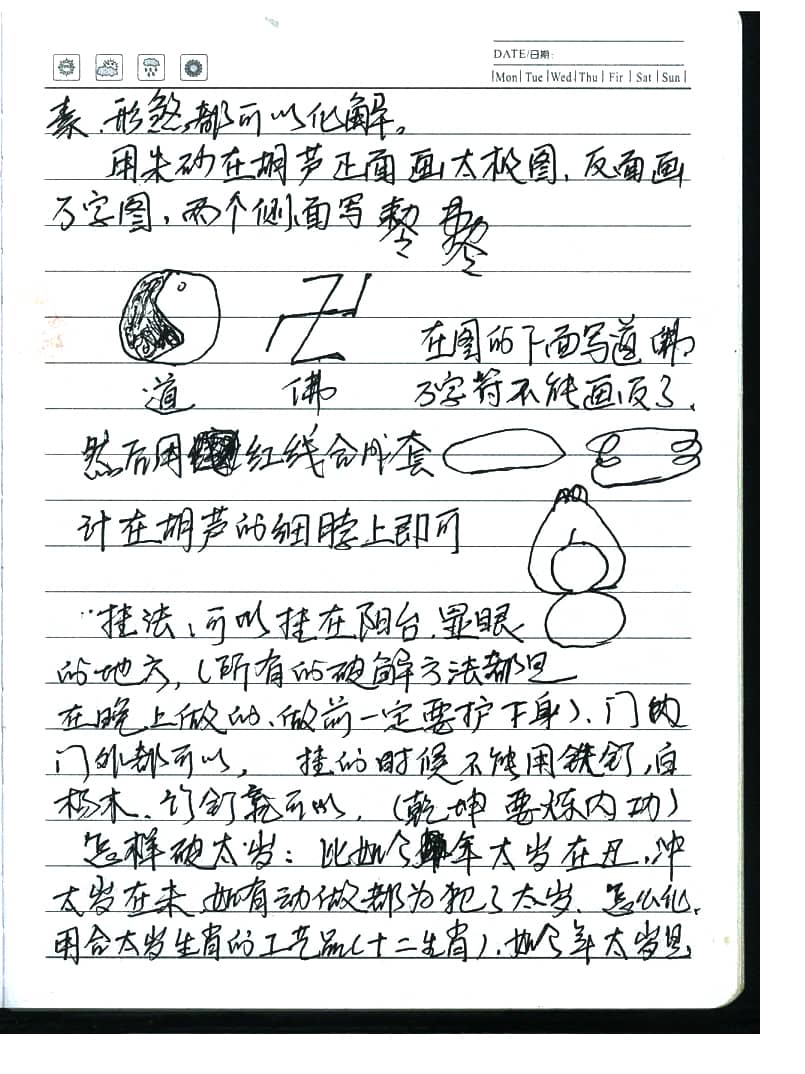 DATE/日期:
Mon Tue Wed Thu Fir Sat Sun
素、形煞都可以化解。
用朱砂在胡芦正面画太极图,反面画
万字图,两个侧面写
卍
在图的下面写道 佛
道 佛 万字符不能画反了.
然后用红线合成套
计在胡芦的细脖上即可
挂法、可以挂在阳台.显眼
的地方,(所有的破解方法都是
在晚上做的、做前一定要护下身)、门内
门外都可以, 挂的时候不能用铁钉,白
杨木、竹钉就可以.(乾坤要炼内功)
怎样破太岁:比如今年太岁在丑,冲
太岁在未,如有动做都为犯了太岁、怎么化.
用合太岁生肖的工艺品(十二生肖).如今年太岁是